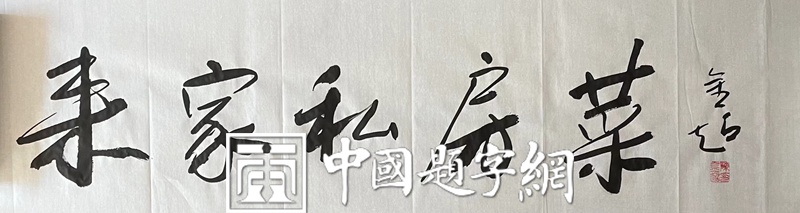 来家私房菜
金超
中國題字網